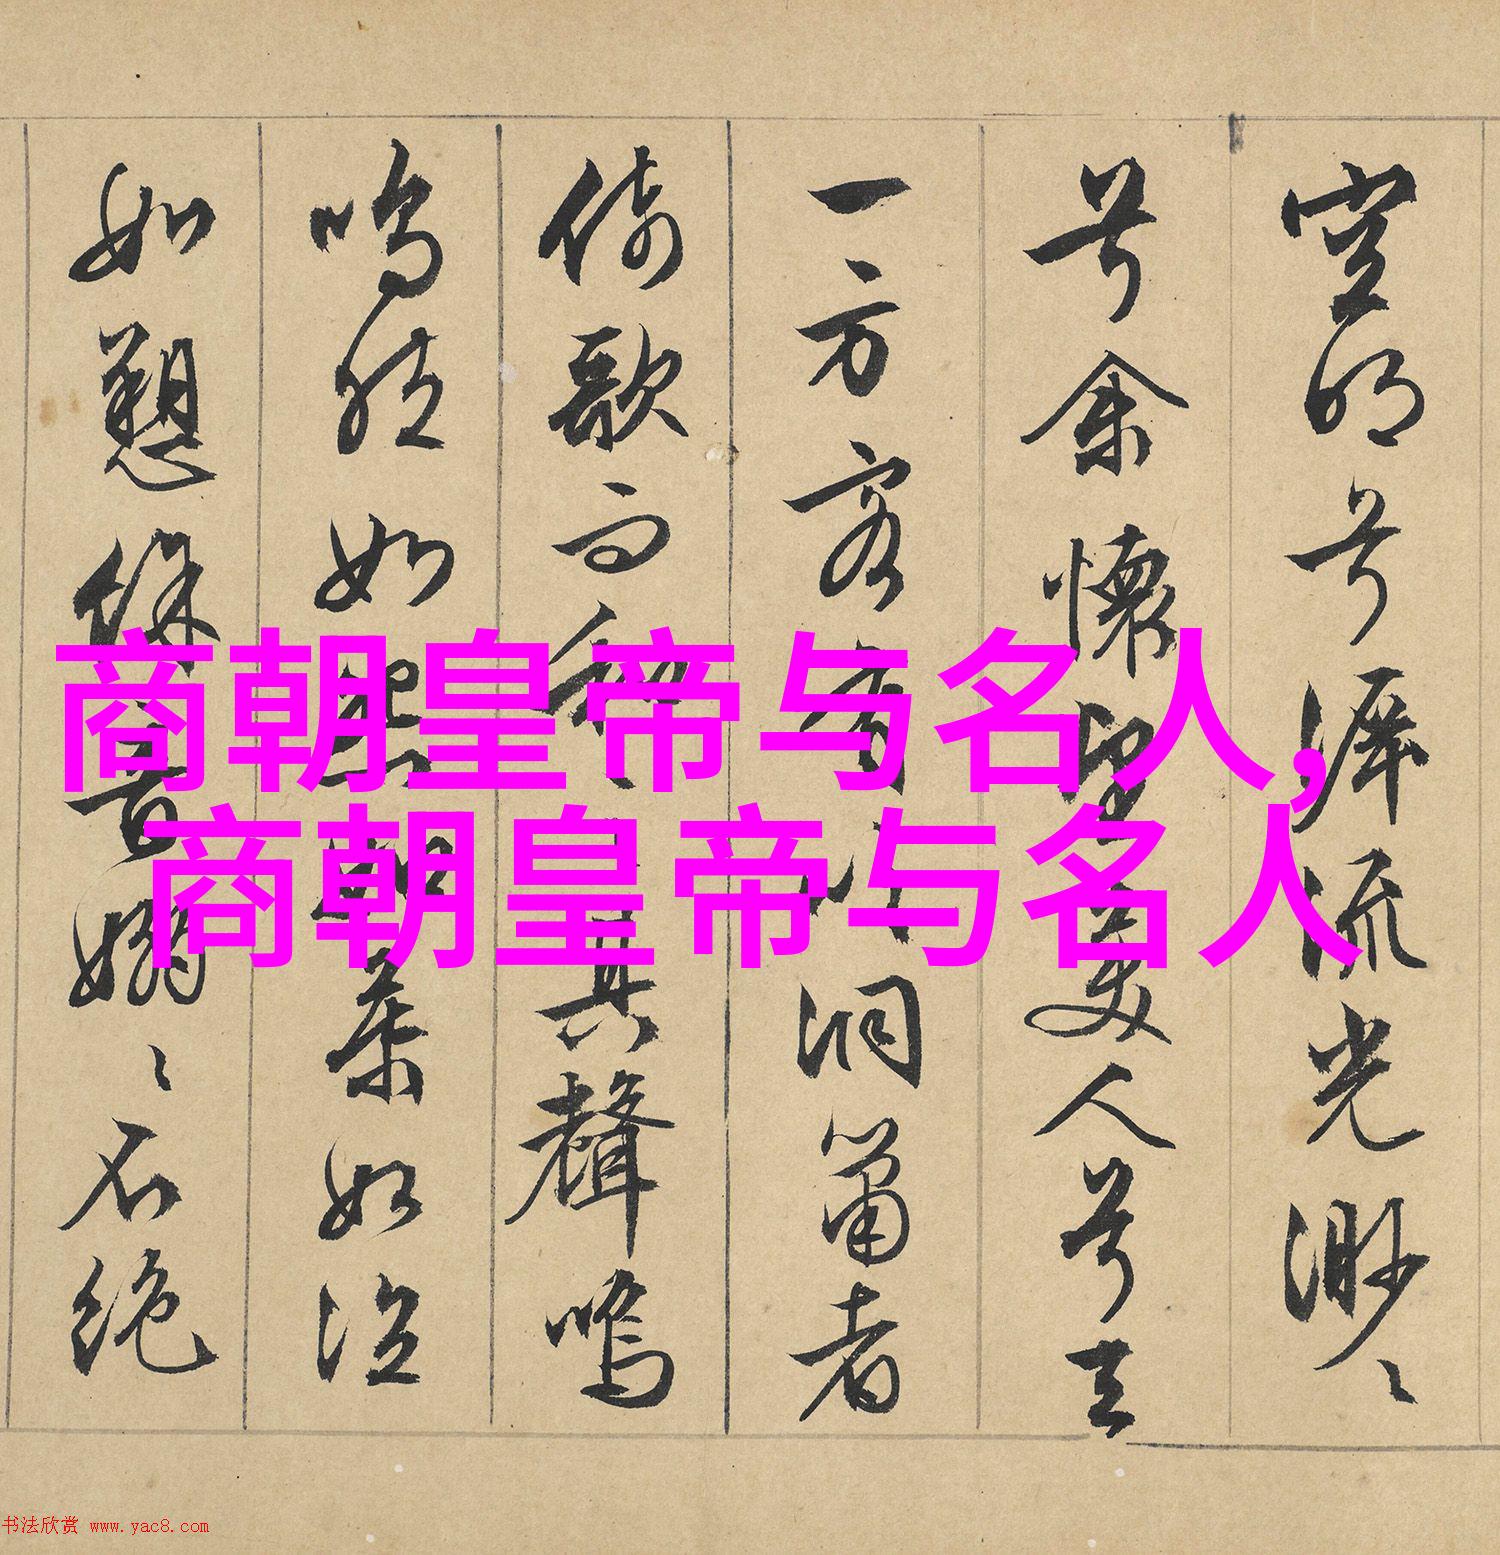 空明兮泝流光渺〻
兮余懷望美人兮天
一方客有吹洞簫者
倚歌而和之其聲嗚
嗚然如怨如慕如泣
如愬餘音嫋〻不絕
商朝皇帝与名人,
商朝皇帝与名人
书法欣赏 www.yac8.com